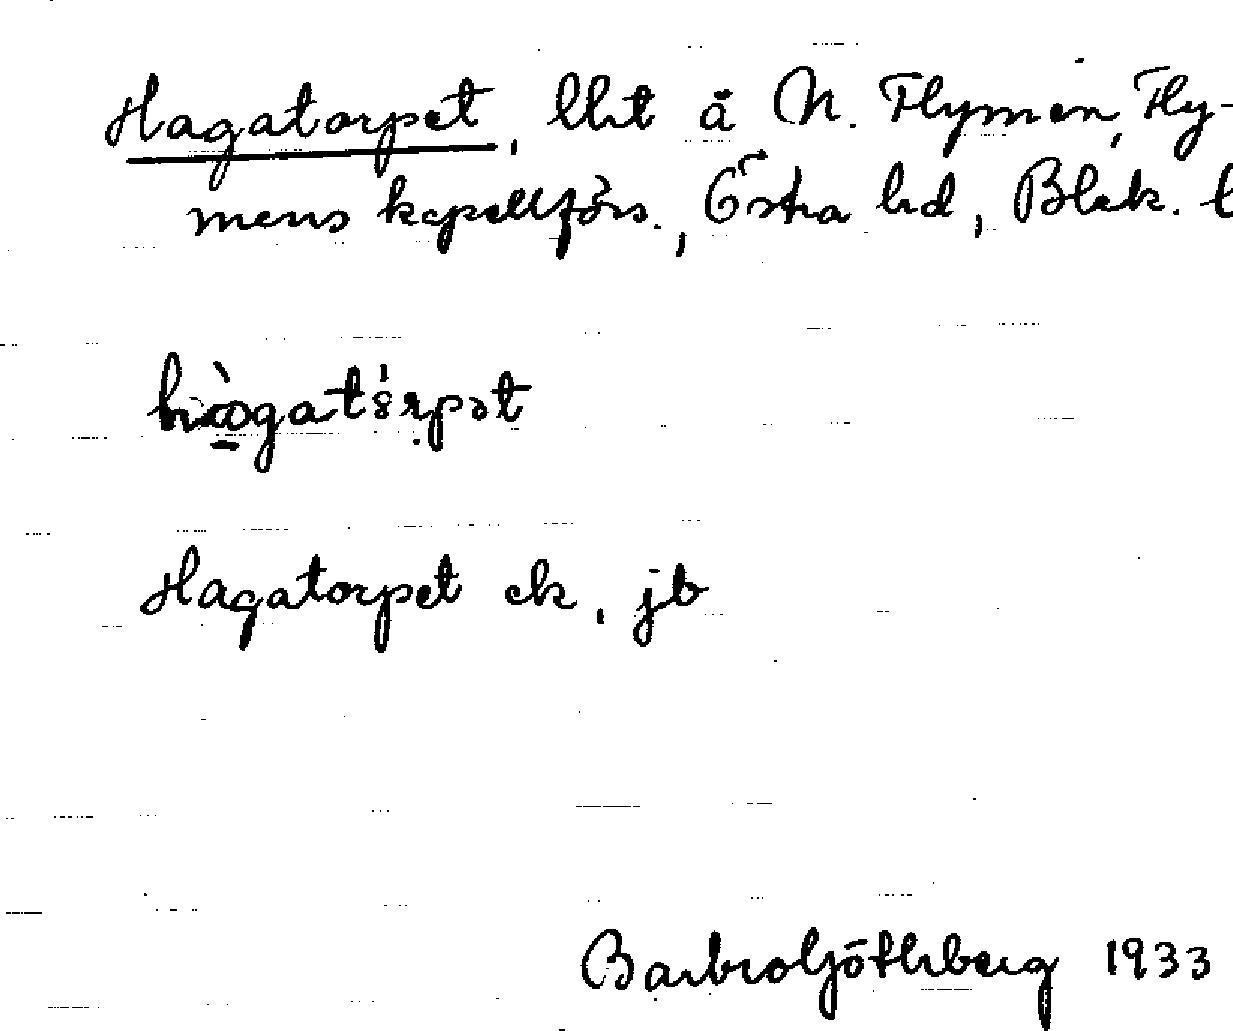 Hagatorpet, lht å N. Flymen, Fly-
mens kapellförs., Östra hd, Blek. l
Hagatorpet ek, jb
Barbro Götherberg 1933